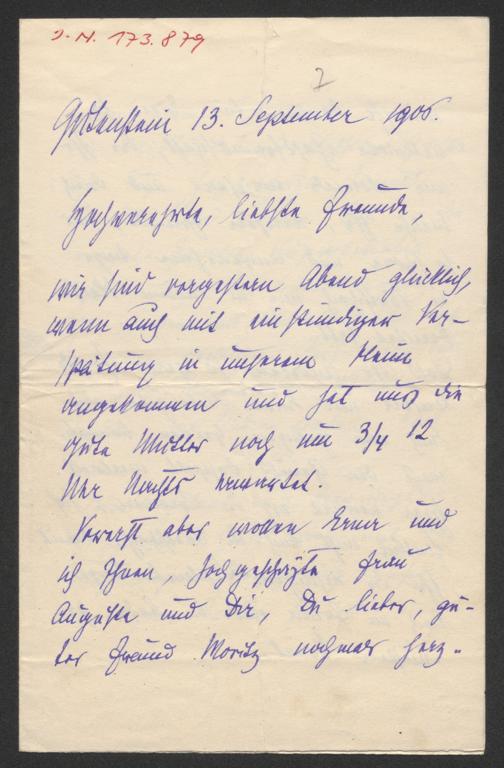 J. N. 173.879
7
Gutenstein 13. September 1906.
Hochverehrte, liebste Freunde,
wir sind vorgestern Abend glücklich,
wenn auch mit einstündiger Ver-
spätung in unserem Heim
angekommen und hat uns die
gute Mutter noch um 3/4 12
Uhr Nachts erwartet.
Vorerst aber wollen Erna und
ich Ihnen, hochgeschätzte Frau
Auguste und Dir, Du lieber, gu-
ter Freund Moritz nochmals herz-